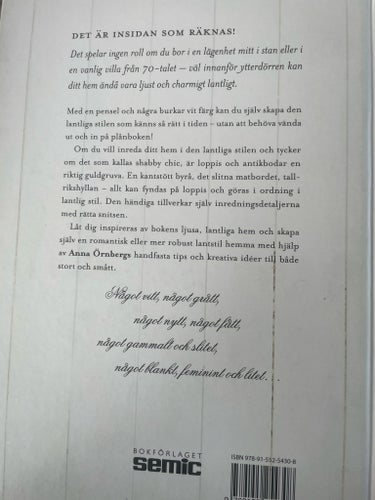 DET ÄR INSIDAN SOM RÄKNAS!
Det spelar ingen roll om du bor i en lägenhet mitt i stan eller i
en vanlig villa från 70-talet – väl innanför ytterdörren kan
ditt hem ändå vara ljust och charmigt lantligt.
Med en pensel och några burkar vit färg kan du själv skapa den
lantliga stilen som känns så rätt i tiden – utan att behöva vända
ut och in på plånboken!
Om du vill inreda ditt hem i den lantliga stilen och tycker
om det som kallas shabby chic, är loppis och antikbodar en
riktig guldgruva. En kantstött byrå, det slitna matbordet, tall-
rikshyllan – allt kan fyndas på loppis och göras i ordning i
lantlig stil. Den händiga tillverkar själv inredningsdetaljerna
med rätta snitsen.
Låt dig inspireras av bokens ljusa, lantliga hem och skapa
själv en romantisk eller mer robust lantstil hemma med hjälp
av Anna Örnbergs handfasta tips och kreativa idéer till både
stort och smått.
Något vitt, något grått,
något nytt, något fått,
något gammalt och slitet,
något blankt, feminint och litet...
ISBN 978-91-552-5430-8
BOKFÖRLAGET
semic